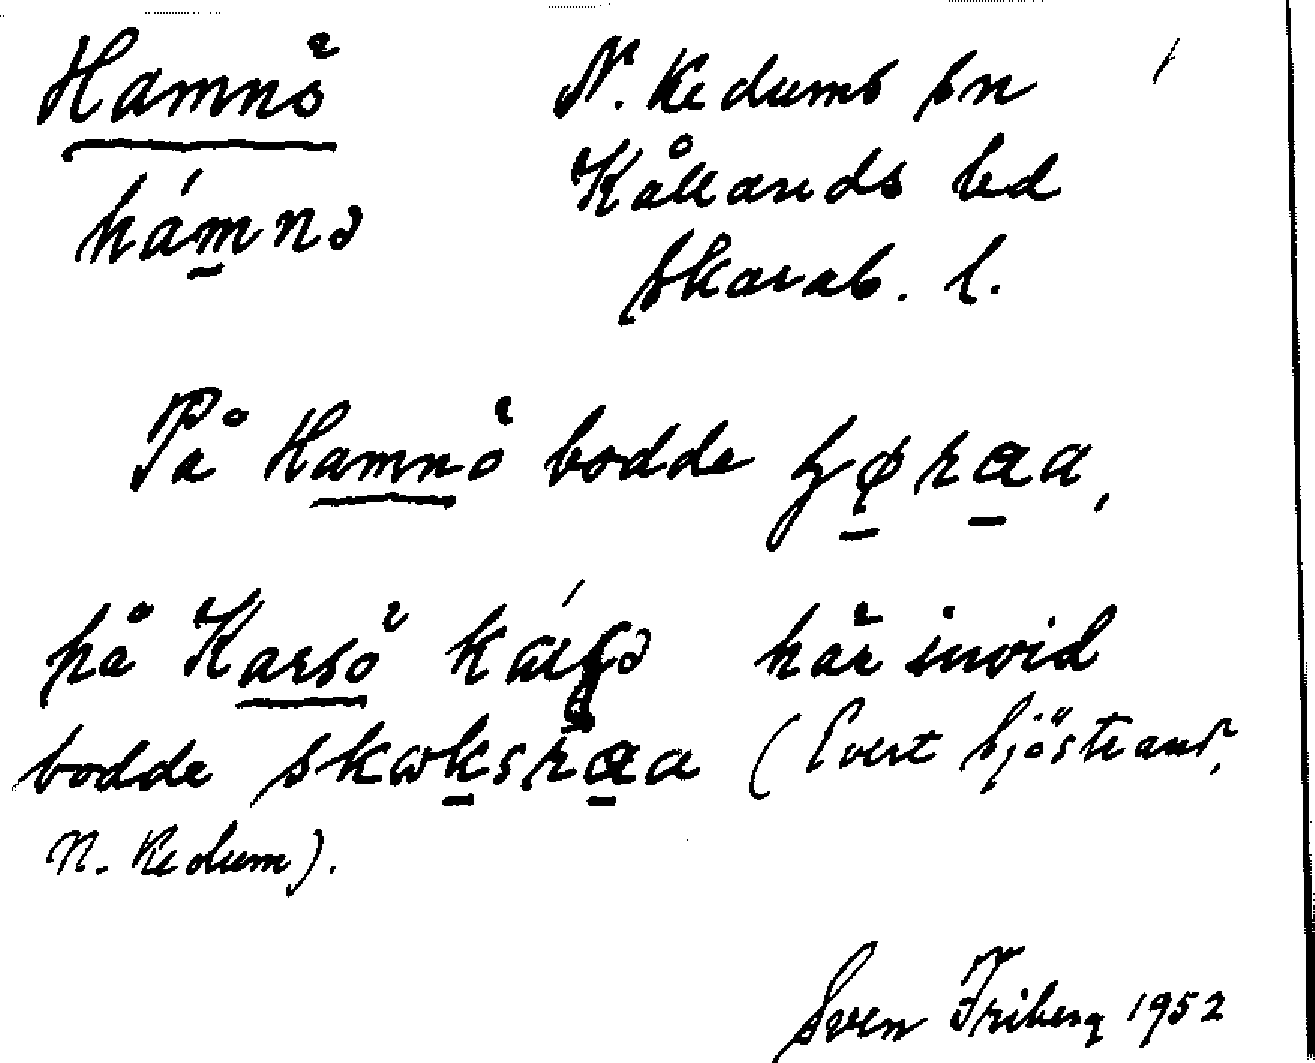 Hamnö N. Kedums sn
hámnə Kållands hd
Skarab. l.
På Hamnö bodde ʒøraa,
på Karsö här invid
bodde skɷksraa (Evert Sjöstrand,
N. Kedum).
Sven Friberg 1952